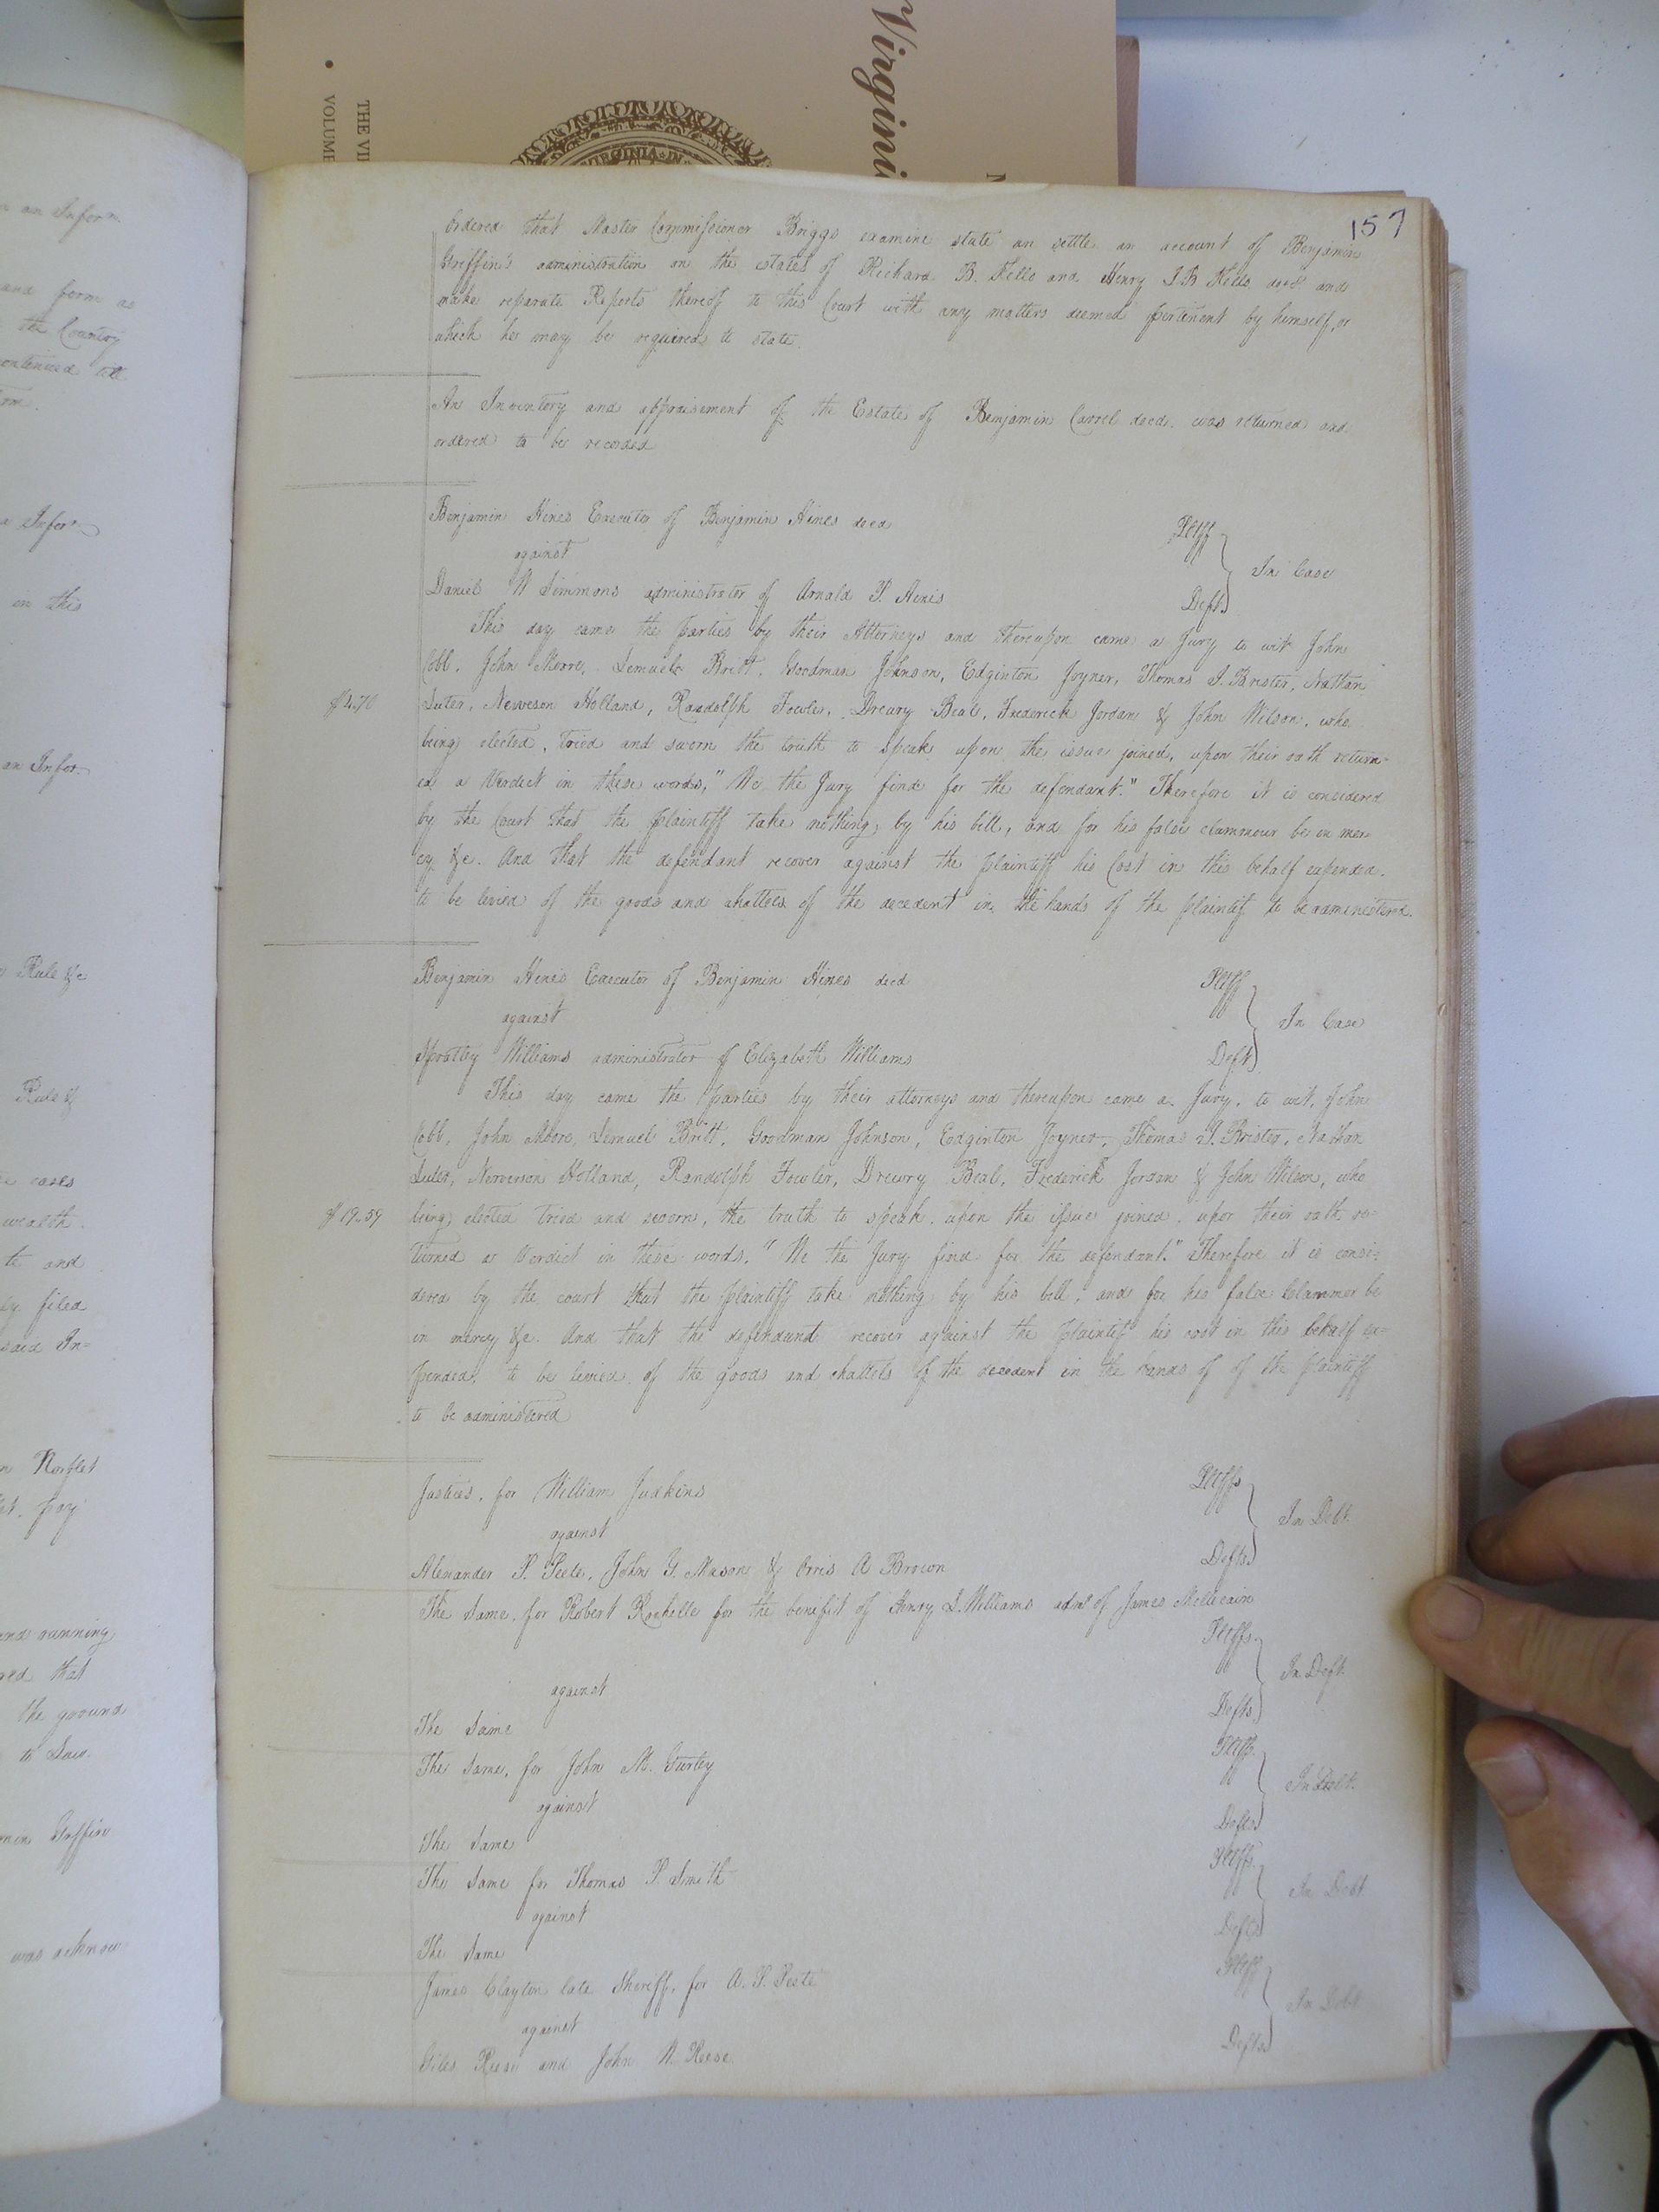 Virgini
THE VI
VOLUME
VIRGINIA IN
157
Ordered that Master Commissioner Briggs examine state an settle an account of Benjamin
Griffin's administration on the estates of Richard B. Kello and Henry J B Kello decd and
make separate Reports thereof to this Court with any matters deemed pertinent by himself, or
which he may be required to state.
An Inventory and appraisement of the Estate of Benjamin Carrel decd. was returned and
ordered to be recorded
Benjamin Hines Executor of Benjamin Hines decd Pltff
against In Case
Daniel W Simmons administrator of Arnald P. Hines Deft.
This day came the parties by their Attorneys and thereupon came a Jury to wit John
Cobb, John Moore, Lemuel Britt, Goodman Johnson, Edginton Joyner, Thomas J. Brister, Nathan
$4.70
Luter, Neweson Holland, Randolph Fowler, Drewry Beal, Frederick Jordan & John Wilson, who
being elected, tried and sworn the truth to speak upon the issue joined, upon their oath return-
ed a Verdict in these words, "We the Jury find for the defendant." Therefore it is considered
by the Court that the plaintiff take nothing by his bill, and for his false clammour be in mer-
cy &c. And that the defendant recover against the plaintiff his Cost in this behalf expended.
to be levied of the goods and chattels of the decedent in the hands of the plaintif to be administered.
Benjamin Hines Executor of Benjamin Hines decd Pltff
against In Case
Spratley Williams administrator of Elizabeth Williams Deft
This day came the parties by their attorneys and thereupon came a Jury, to wit, John
Cobb, John Moore, Lemuel Britt, Goodman Johnson, Edginton Joyner, Thomas J. Brister, Nathan
Luter, Newerson Holland, Randolph Fowler, Drewry Beal, Frederick Jordan & John Wilson, who
$19.59
being elected tried and sworn, the truth to speak upon the issue joined, upon their oath re-
turned a Verdict in these words. "We the Jury find for the defendant." Therefore it is consi-
dered by the court that the plaintiff take nothing by his bill, and for his false Clammer be
in mercy &c. And that the defendant recover against the plaintif his cost in this behalf ex-
pended, to be levied of the goods and chattels of the decedent in the hands of of the plaintiff
to be administered
Justices, for William Judkins Pltffs
against In Debt.
Alexander P. Peete, John G. Mason & Orris A Brown Defts.
The Same, for Robert Rochelle for the benefit of Henry L. Williams adm of James
Pltffs.
against In Debt.
The Same Defts.
The Same, for John M. Gurley Pltffs.
against In Debt.
The Same Defts
The Same for Thomas P. Smith Pltffs.
against In Debt
The Same Defts
James Clayton late Sheriff, for A. P. Peete Pltff
against In Debt
Giles Reese and John W. Reese Defts.
an Inform.
and form as
the Country
continued till
in this
an Infor.
Rule &c
Rule &
cases
wealth
te and
filed
said In-
Norflet
pay
and running
red that
the ground
to said
Griffin
was acknow